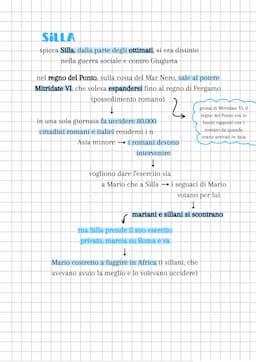 SILLA
spicca Silla, dalla parte degli ottimati, si era distinto
nella guerra sociale e contro Giugurta
nel regno del Ponto, sulla costa del Mar Nero, sale al potere
Mitridate VI, che voleva espandersi fino al regno di Pergamo
(possedimento romano)
prima di Mitridate VI, il
regno del Ponto era in
buoni rapporti con i
romani da quando
erano arrivati in Asia
in una sola giornata fa uccidere 80.000
cittadini romani e italici residenti i n
Asia minore → i romani devono
intervenire
vogliono dare l'esercito sia
a Mario che a Silla → i seguaci di Mario
votano per lui
mariani e sillani si scontrano
ma Silla prende il suo esercito
privato, marcia su Roma e va
Mario costretto a fuggire in Africa (i sillani, che
avevano avuto la meglio e lo volevano uccidere)